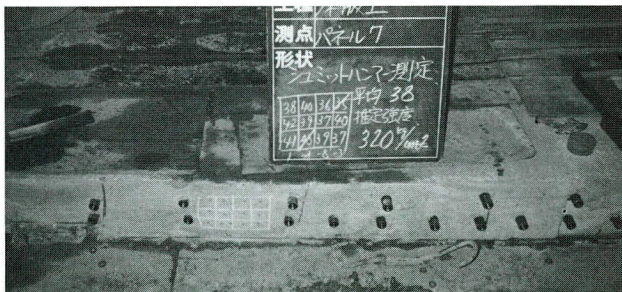 工種 床版工
測点 パネル7
形状
シュミットハンマー測定
38 40 36
42 39 37 40
41 39 37
平均 38
推定強度
320 kg/cm2